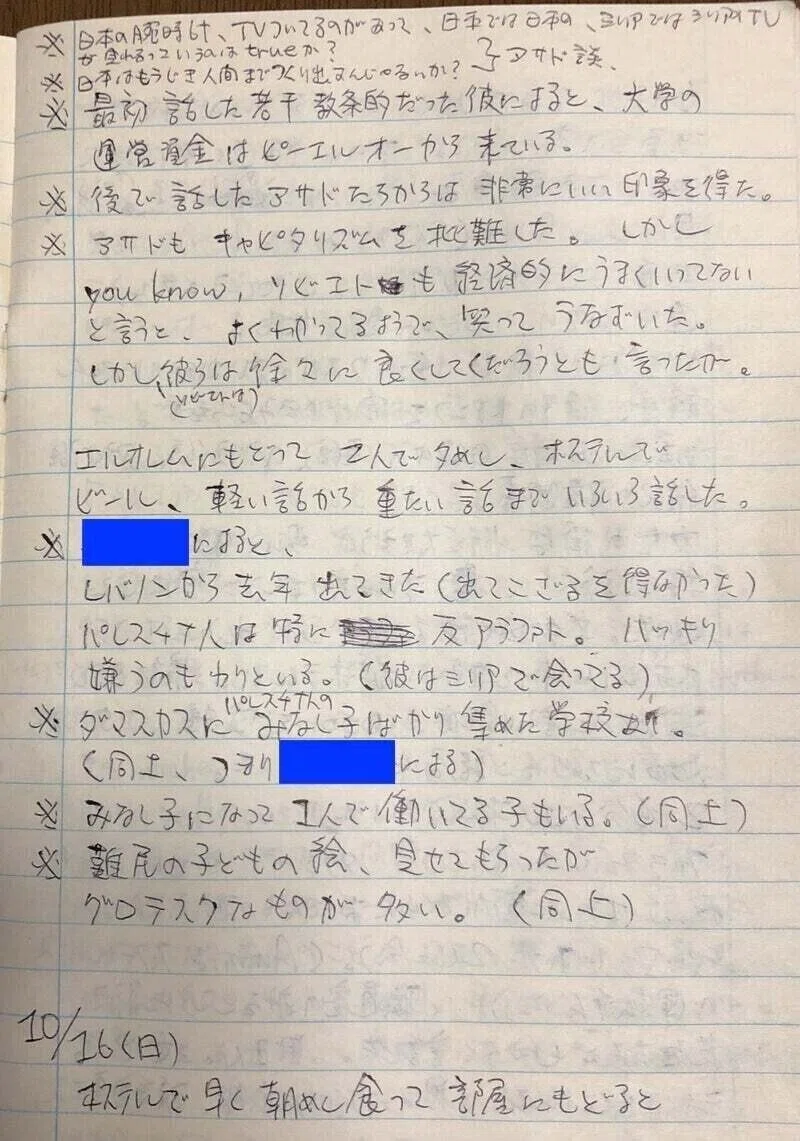 ※ 日本の腕時計、TVついてるのがあって、日本では日本の、シリアではシリアのTV
が塗れるっていうのはtrueか?
※ 日本はもうじき人間までつくり出すんじゃないか? } アサド談、
※ 最初話した若干教条的だった彼によると、大学の
運営資金はピーエルオーから来ている。
※ 後で話したアサドたちからは非常にいい印象を得た。
※ アサドもキャピタリズムを批難した。しかし
you know, ソビエトも経済的にうまくいってない
と言うと、よくわかってるようで、笑ってうなずいた。
しかし彼らは徐々に良くしてくだろうとも言ったが。
(ソビエトは)
エルサレムにもどって2人で夕めし、ホステルで
ビール、軽い話から重たい話までいろいろ話した。
※ によると、
レバノンから去年出てきた(出てこざるを得なかった)
パレスチナ人は特に反アラファト。ハッキリ
嫌うのもわりといる。(彼はシリアで会ってる)
※ ダマスカスにパレスチナ人のみなし子ばかり集めた学校あり。
(同上、つまり による)
※ みなし子になって1人で働いてる子もいる。(同上)
※ 難民の子どもの絵、見せてもらったが
グロテスクなものが多い。(同上)
10/16(日)
ホステルで早く朝めし食って部屋にもどると